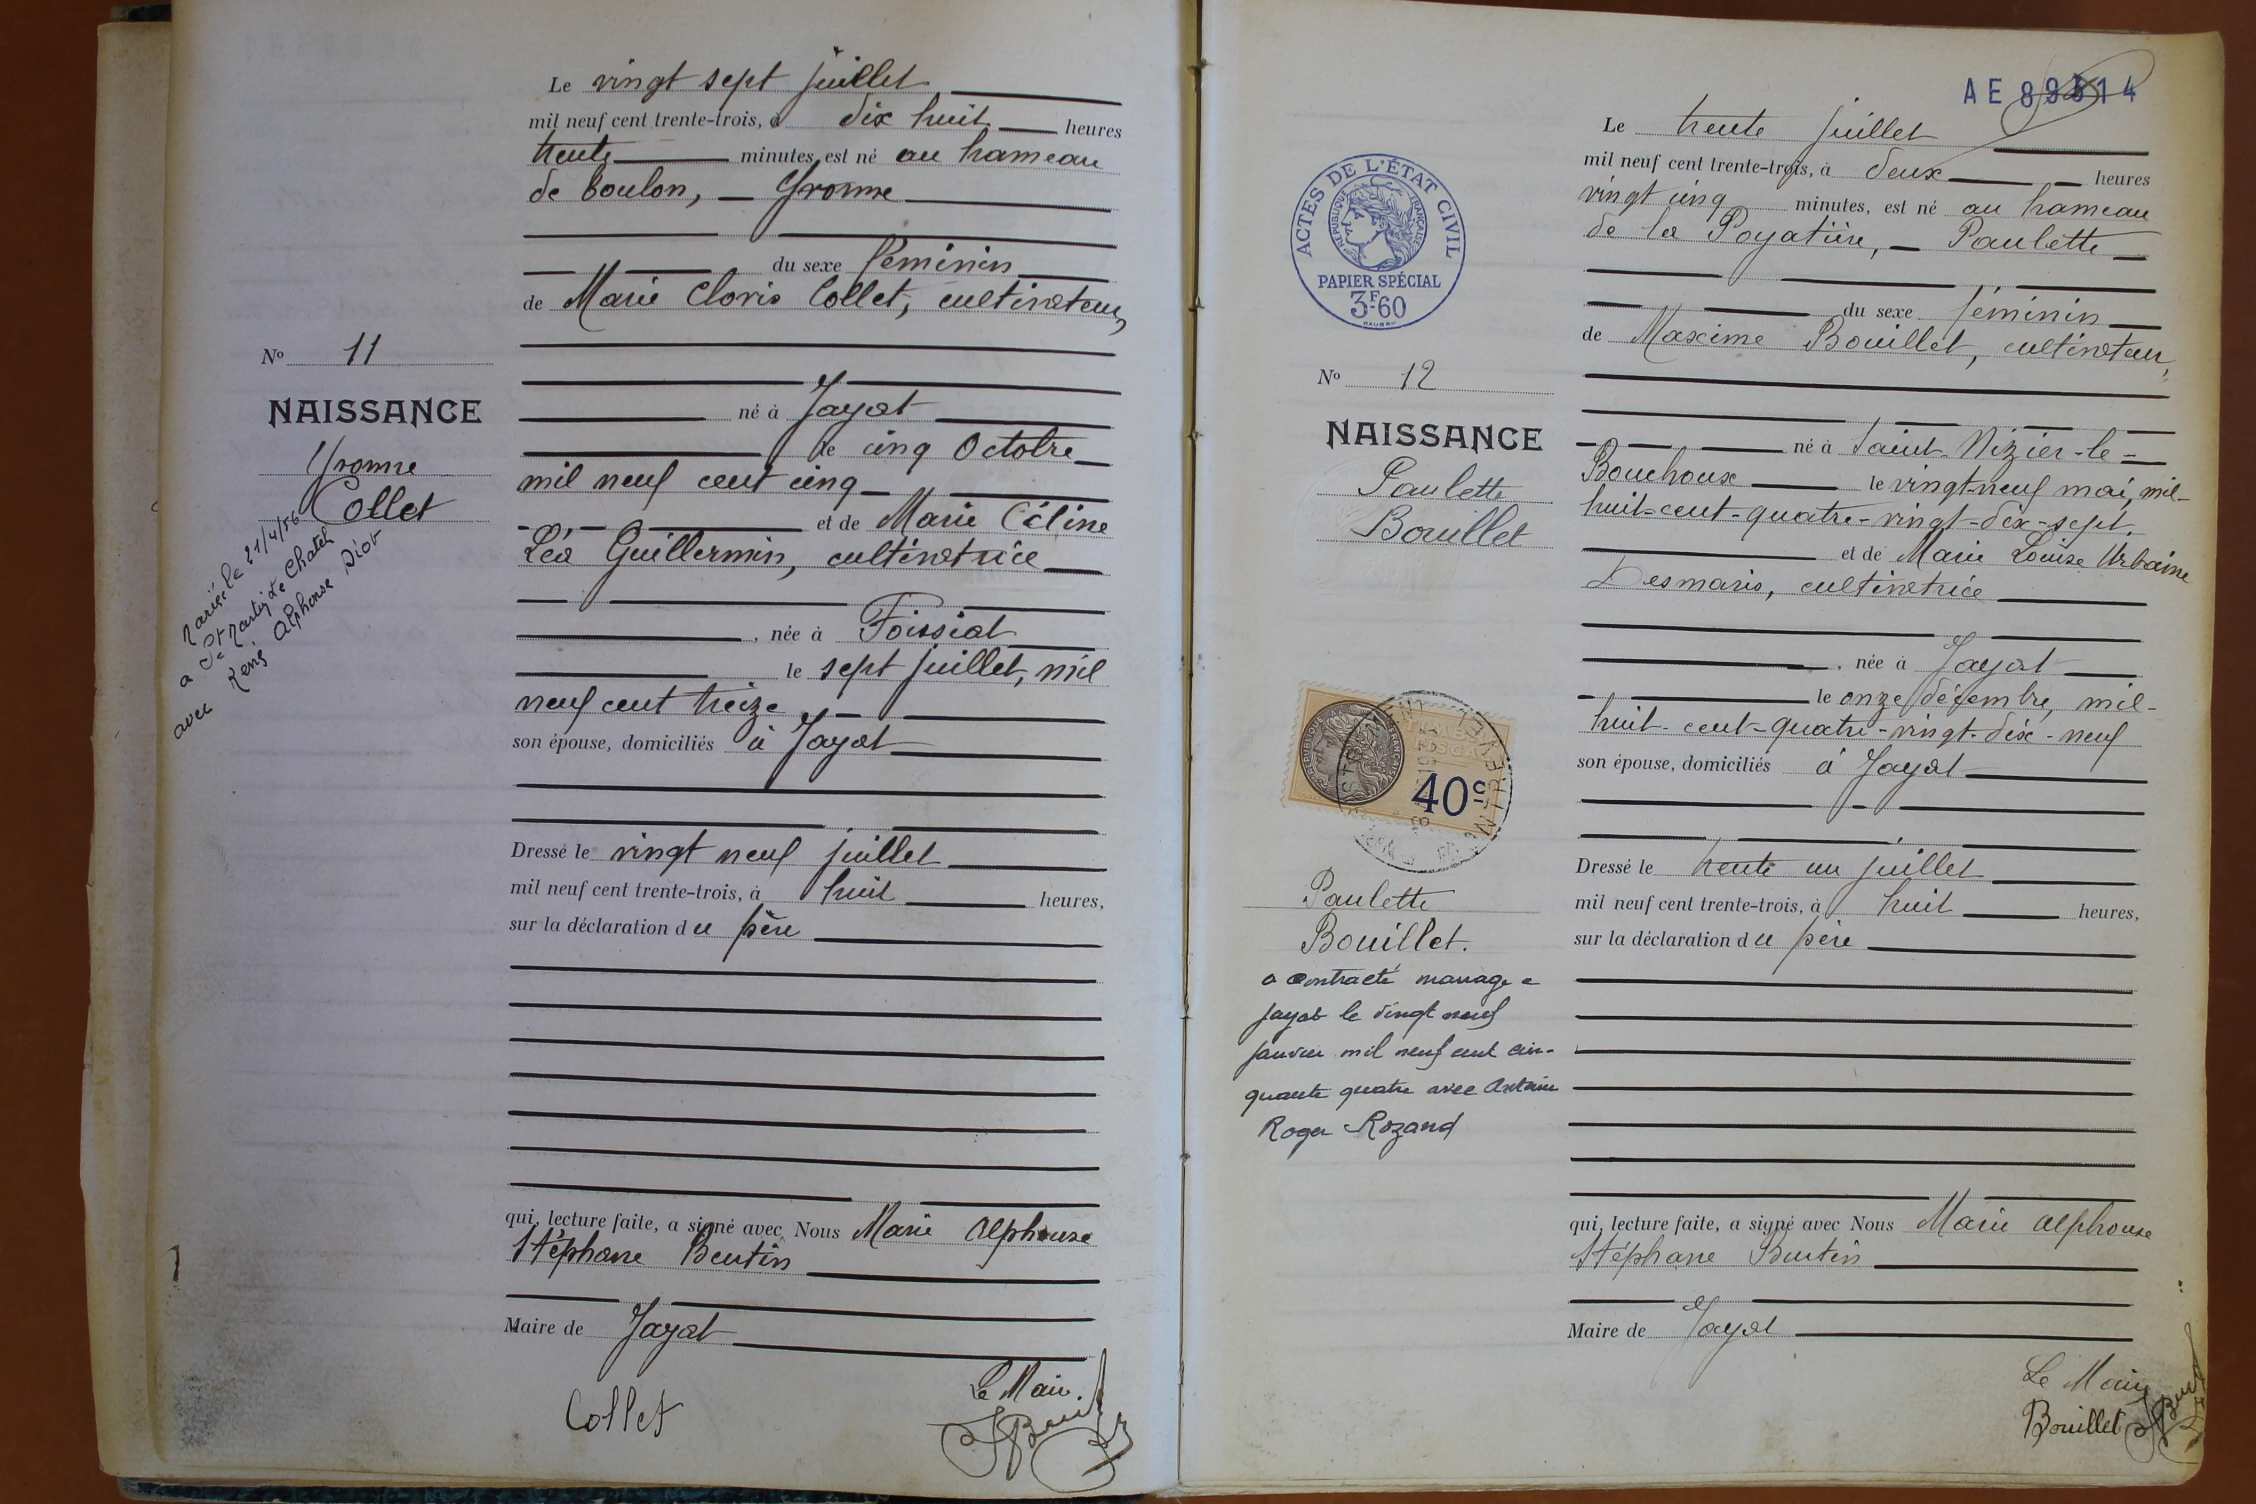 Le vingt sept juillet
mil neuf cent trente-trois, à dix huit heures
trente minutes, est né au hameau
de Coulon, Yvonne
du sexe féminin
de Marie Clovis Collet, cultivateur,
né à Jayat
le cinq Octobre
mil neuf cent cinq
et de Marie Céline
Léa Guillermin, cultivatrice
, née à Foissiat
le sept juillet, mil
neuf cent treize
son épouse, domiciliés à Jayat
Dressé le vingt neuf juillet
mil neuf cent trente-trois, à huit heures,
sur la déclaration du père
qui, lecture faite, a signé avec Nous Marie Alphonse
Stéphane Beutin
Maire de Jayat
Collet
Le Maire.
No 11
NAISSANCE
Yvonne
Collet
Mariée le 21/4/56
a St Martin le Chatel
avec René Alphonse Diot
AE 89514
Le trente juillet
mil neuf cent trente-trois, à deux heures
vingt cinq minutes, est né au hameau
de la Poyatière, Paulette
du sexe féminin
de Maxime Bouillet, cultivateur,
né à Saint-Nizier-le-
Bouchoux le vingt-neuf mai, mil-
huit-cent-quatre-vingt-dix-sept,
et de Marie Louise Urbaine
Desmaris, cultivatrice
, née à Jayat
le onze décembre, mil-
huit-cent-quatre-vingt-dix-neuf
son épouse, domiciliés à Jayat
Dressé le trente un juillet
mil neuf cent trente-trois, à huit heures,
sur la déclaration du père
qui, lecture faite, a signé avec Nous Marie Alphonse
Stéphane Beutin
Maire de Jayat
Le Maire
Bouillet
ACTES DE L'ÉTAT CIVIL
RÉPUBLIQUE FRANÇAISE
PAPIER SPÉCIAL
3F60
No 12
NAISSANCE
Paulette
Bouillet
RÉPUBLIQUE FRANÇAISE
40c
Paulette
Bouillet.
a contracté mariage a
Jayat le vingt neuf
janvier mil neuf cent cin-
quante quatre avec Antoine
Roger Rozand